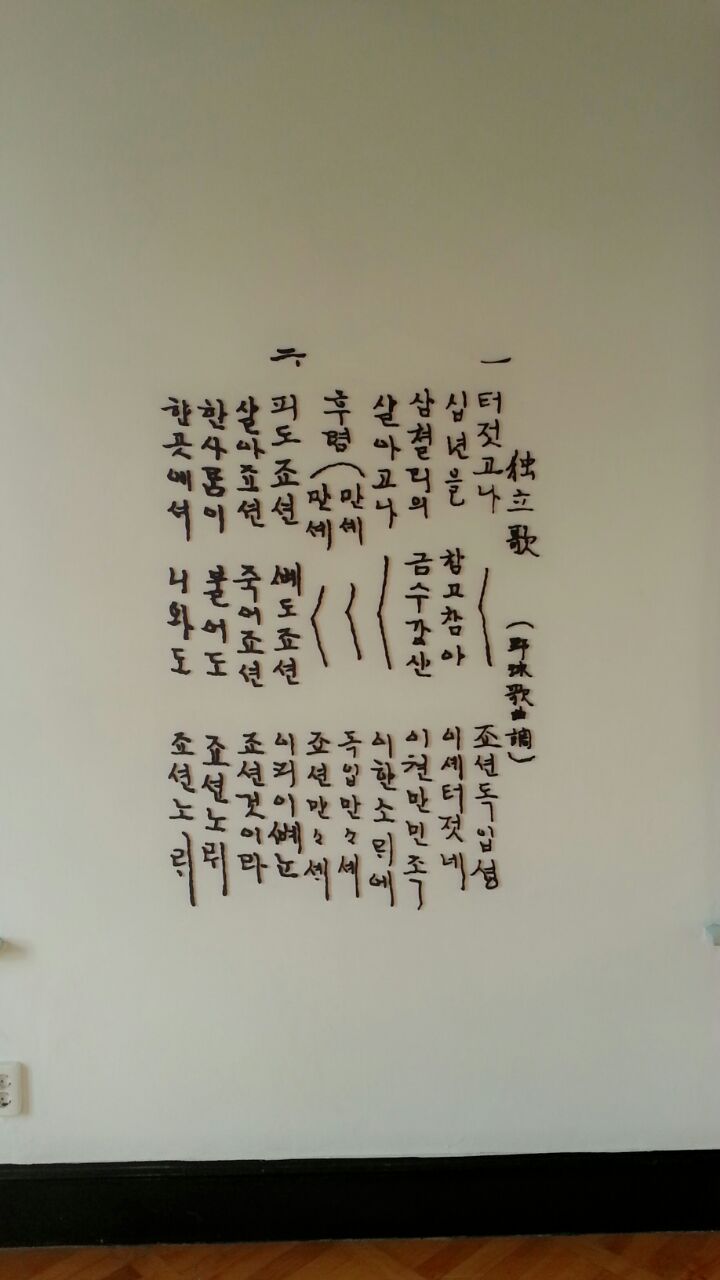 独立歌 (野球歌曲調)
一 터젓고나 〱 죠션독입셩
십년을 참고참아 이셰터젓네
삼쳘리의 금수강산 이쳔만민족
살아고나 〱 이한소릐에
후렴 (만셰 〱 독입만々셰
만셰 〱 죠션만々셰
二、 피도죠션 뼈도죠션 이픠이뼈는
살아죠션 죽어죠션 죠션것이라
한사룸이 불어도 죠션노릐
한곳에셔 나와도 죠션노릐